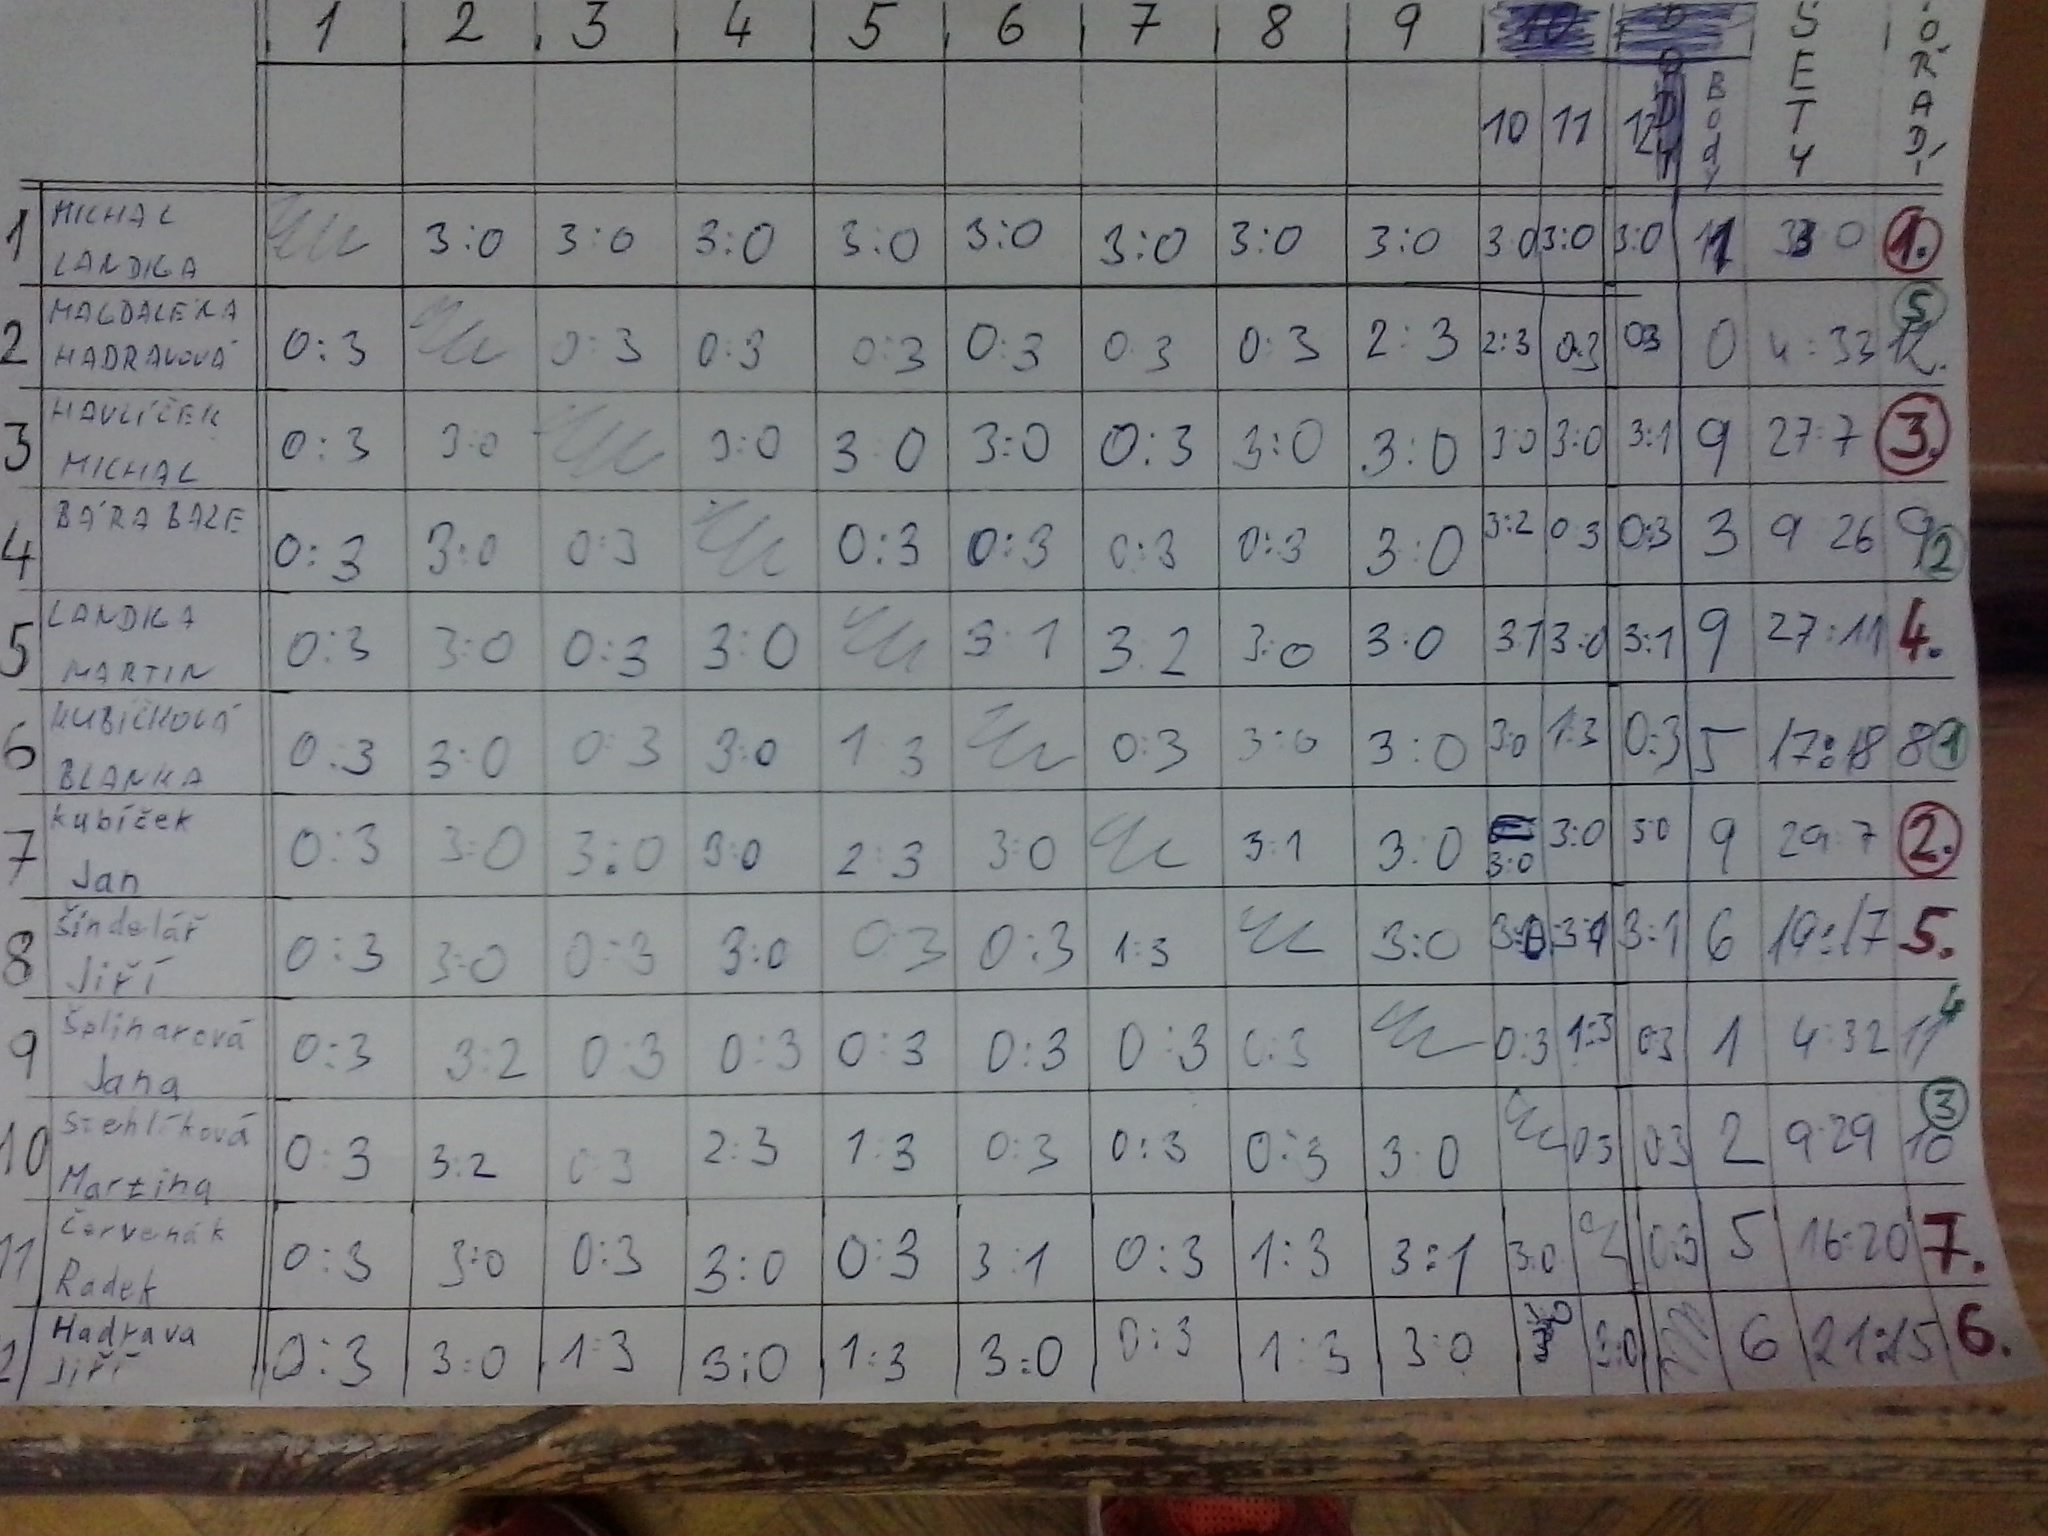 1 2 3 4 5 6 7 8 9 SETY POŘADÍ
10 11 12 Body
1 MICHAL LANDKA 3:0 3:0 3:0 3:0 3:0 3:0 3:0 3:0 3:0 3:0 3:0 11 33 0 1.
2 MAGDALÉNA HADRAVOVÁ 0:3 0:3 0:3 0:3 0:3 0:3 0:3 2:3 2:3 0:3 0:3 0 4:33 12. 5
3 HAVLÍČEK MICHAL 0:3 3:0 3:0 3:0 3:0 0:3 3:0 3:0 3:0 3:0 3:1 9 27:7 3.
4 BÁRA BALE 0:3 3:0 0:3 0:3 0:3 0:3 0:3 3:0 3:2 0:3 0:3 3 9 26 9 2
5 LANDKA MARTIN 0:3 3:0 0:3 3:0 3:1 3:2 3:0 3:0 3:1 3:0 3:1 9 27:11 4.
6 KUBÍČKOVÁ BLANKA 0:3 3:0 0:3 3:0 1:3 0:3 3:0 3:0 3:0 1:3 0:3 5 17:18 8 1
7 Kubíček Jan 0:3 3:0 3:0 3:0 2:3 3:0 3:1 3:0 3:0 3:0 3:0 9 29:7 2.
8 Šindelář Jiří 0:3 3:0 0:3 3:0 0:3 0:3 1:3 3:0 3:0 3:1 3:1 6 19:17 5.
9 Šplinarová Jana 0:3 3:2 0:3 0:3 0:3 0:3 0:3 0:3 0:3 1:3 0:3 1 4:32 11 4
10 Stehlíková Martina 0:3 3:2 0:3 2:3 1:3 0:3 0:3 0:3 3:0 0:3 0:3 2 9:29 10 3
11 Červenák Radek 0:3 3:0 0:3 3:0 0:3 3:1 0:3 1:3 3:1 3:0 0:3 5 16:20 7.
Hadrava Jiří 0:3 3:0 1:3 3:0 1:3 3:0 0:3 1:3 3:0 3:0 6 21:15 6.